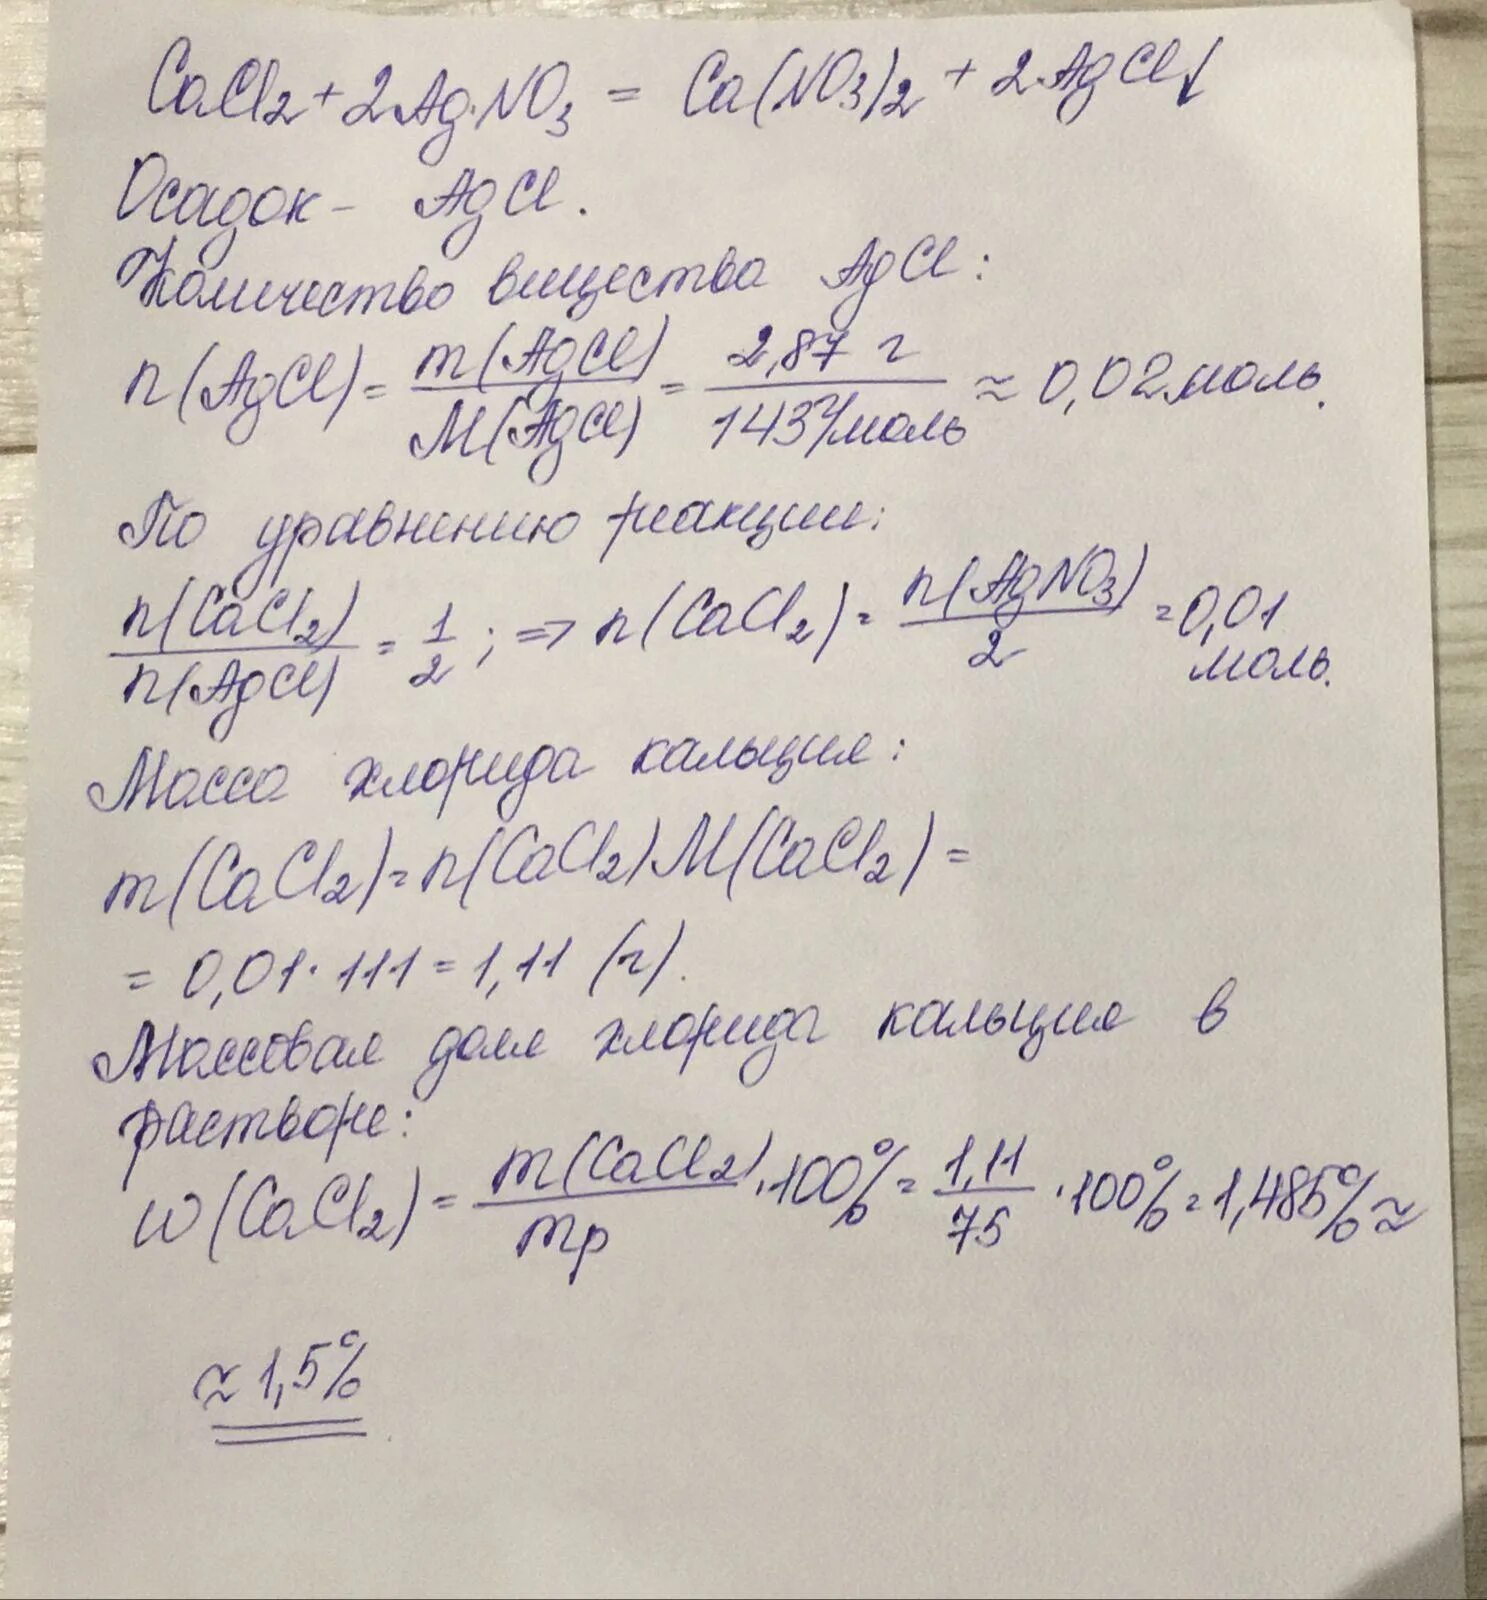 CaCl2 + 2AgNO3 = Ca(NO3)2 + 2AgCl↓
Осадок - AgCl.
Количество вещества AgCl:
n(AgCl) = m(AgCl) / M(AgCl) = 2,87 г / 143 г/моль ≈ 0,02 моль.
По уравнению реакции:
n(CaCl2) / n(AgCl) = 1/2; => n(CaCl2) = n(AgNO3) / 2 = 0,01 моль.
Масса хлорида кальция:
m(CaCl2) = n(CaCl2) M(CaCl2) =
= 0,01 · 111 = 1,11 (г).
Массовая доля хлорида кальция в
растворе:
w(CaCl2) = m(CaCl2) / mр · 100% = 1,11 / 75 · 100% = 1,485% ≈
≈ 1,5%